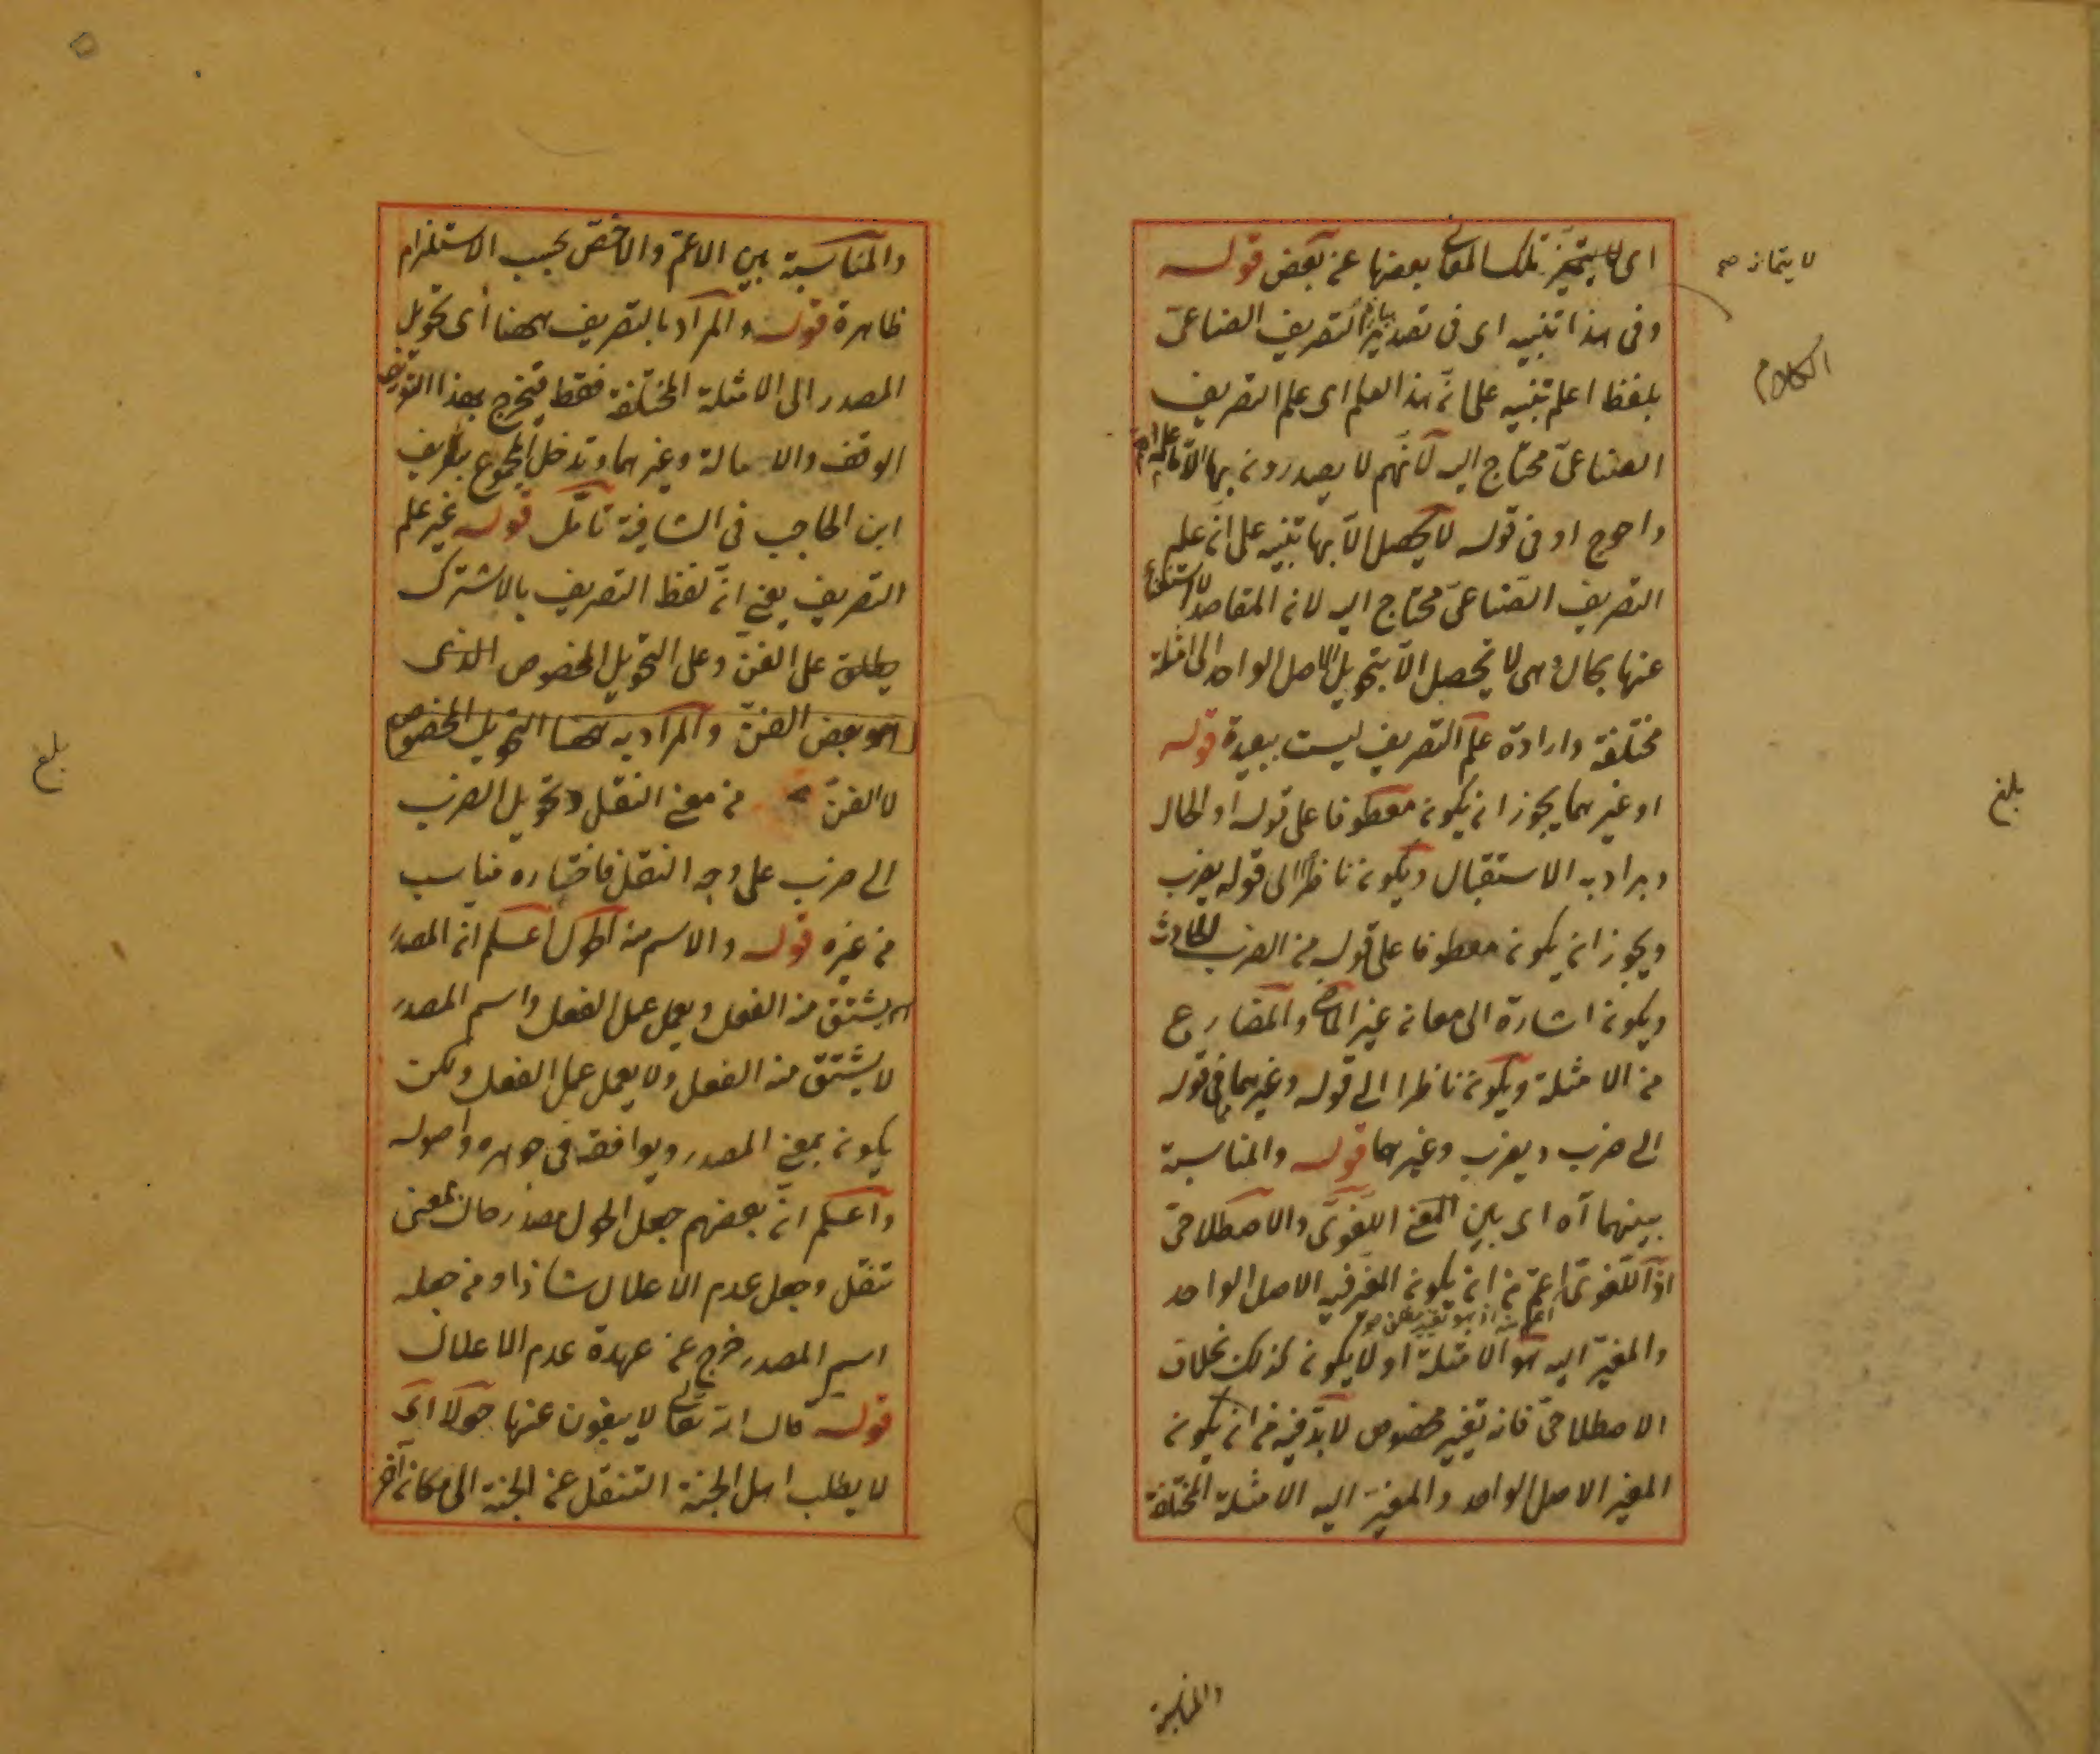 اى لا يتميز تلك المعانى بعضها عن بعض قوله
وفى هذا تنبيه اى فى تصدير بيان التصريف الصناعى
بلفظ اعلم تنبيه على انّ هذا العلم اى علم التصريف
الصناعىّ محتاج اليه لانّهم لا يصدرون بها الّا
واحوج او فى قوله لا يحصل الّا بها تنبيه على انّ علم
التصريف الصّناعىّ محتاج اليه لان المقاصد لا استغناء
عنها بحال وهى لا تحصل الّا بتحويل الاصل الواحد الى امثلة
مختلفة وارادة علم التصريف ليست ببعيدة قوله
او غيرهما يجوز ان يكون معطوفا على قوله او الحال
ويراد به الاستقبال ويكون ناظرًا الى قوله يضرب
ويجوز ان يكون معطوفا على قوله من الضرب الحادث
ويكون اشارة الى معان غير الماضى والمضارع
من الامثلة ويكون ناظرا الى قوله وغيرهما فى قوله
الى ضرب ويضرب وغيرهما قوله والمناسبة
بينهما آه اى بين المعنى اللّغوىّ والاصطلاحىّ
اذ اللّغوىّ اعمّ من ان يكون المغيّر فيه الاصل الواحد
والمغيّر اليه هو الامثلة او لا يكون كذلك بخلاف
الاصطلاحىّ فانه تغيير مخصوص لا بدّ فيه من ان يكون
المغيّر الاصل الواحد والمغيّر اليه الامثلة المختلفة
لا يتمايز صح
الكلام
بلغ
والمناسبة
والمناسبة بين الاعمّ والاخصّ بحسب الاستلزام
ظاهرة قوله والمراد بالتصريف ههنا اى تحويل
المصدر الى الامثلة المختلفة فقط فيخرج بهذا التعريف
الوقف والامالة وغيرهما وتدخل المجموع بتعريف
ابن الحاجب فى الشافية تأمّل قوله غير علم
التصريف يعنى انّ لفظ التصريف بالاشتراك
يطلق على الفنّ وعلى التحويل المخصوص الذى
هو بعض الفنّ والمراد به ههنا التحويل المخصوص
لا الفنّ من معنى النقل وتحويل الضرب
الى ضرب على وجه النقل فاختياره مناسب
من غيره قوله والاسم منه الحول اعلم انّ المصدر
يشتق منه الفعل ويعمل عمل الفعل واسم المصدر
لا يشتق منه الفعل ولا يعمل عمل الفعل ولكن
يكون بمعنى المصدر ويوافقه فى جوهره واصوله
واعلم انّ بعضهم جعل الحول مصدر حال بمعنى
تنقل وجعل عدم الاعلال شاذا ومن جعله
اسم المصدر خرج عن عهدة عدم الاعلال
قوله قال الله تعالى لا يبغون عنها حولا اى
لا يطلب اهل الجنة التنقل عن الجنة الى مكان آخر
بلغ